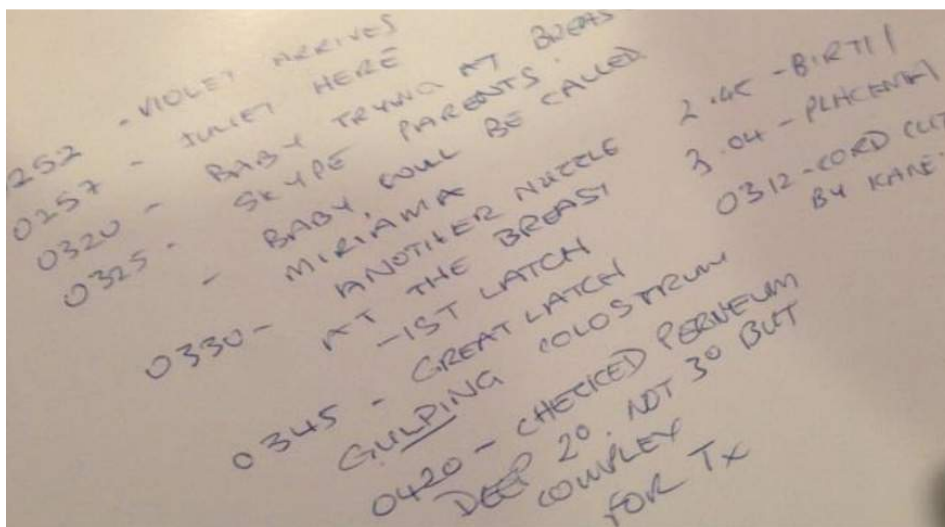 0252 - VIOLET ARRIVES
0257 - JULIET HERE
0320 - BABY TRYING AT BREAS
0325 - SKYPE PARENTS.
- BABY WILL BE CALLED
MIRIAMA
0330 - ANOTHER NUZZLE
AT THE BREAST
- 1ST LATCH
0345 - GREAT LATCH
GULPING COLOSTRUM
0420 - CHECKED PERNEUM
DEEP 2°. NOT 3° BUT
COMPLEX
FOR Tx
2.45 - BIRTH
3.04 - PLACENTA
0312 - CORD
BY